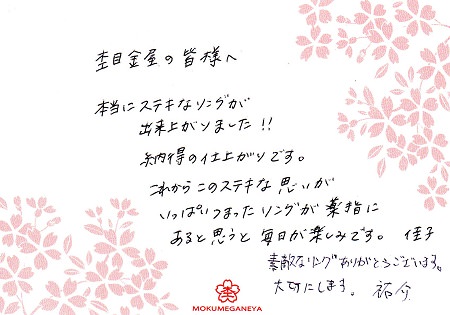 杢目金屋の皆様へ
本当にステキなリングが
出来上がりました!!
納得の仕上がりです。
これからこのステキな思いが
いっぱいつまったリングが薬指に
あると思うと毎日が楽しみです。 佳子
素敵なリングありがとうございます。
大切にします。 祐介
MOKUMEGANEYA